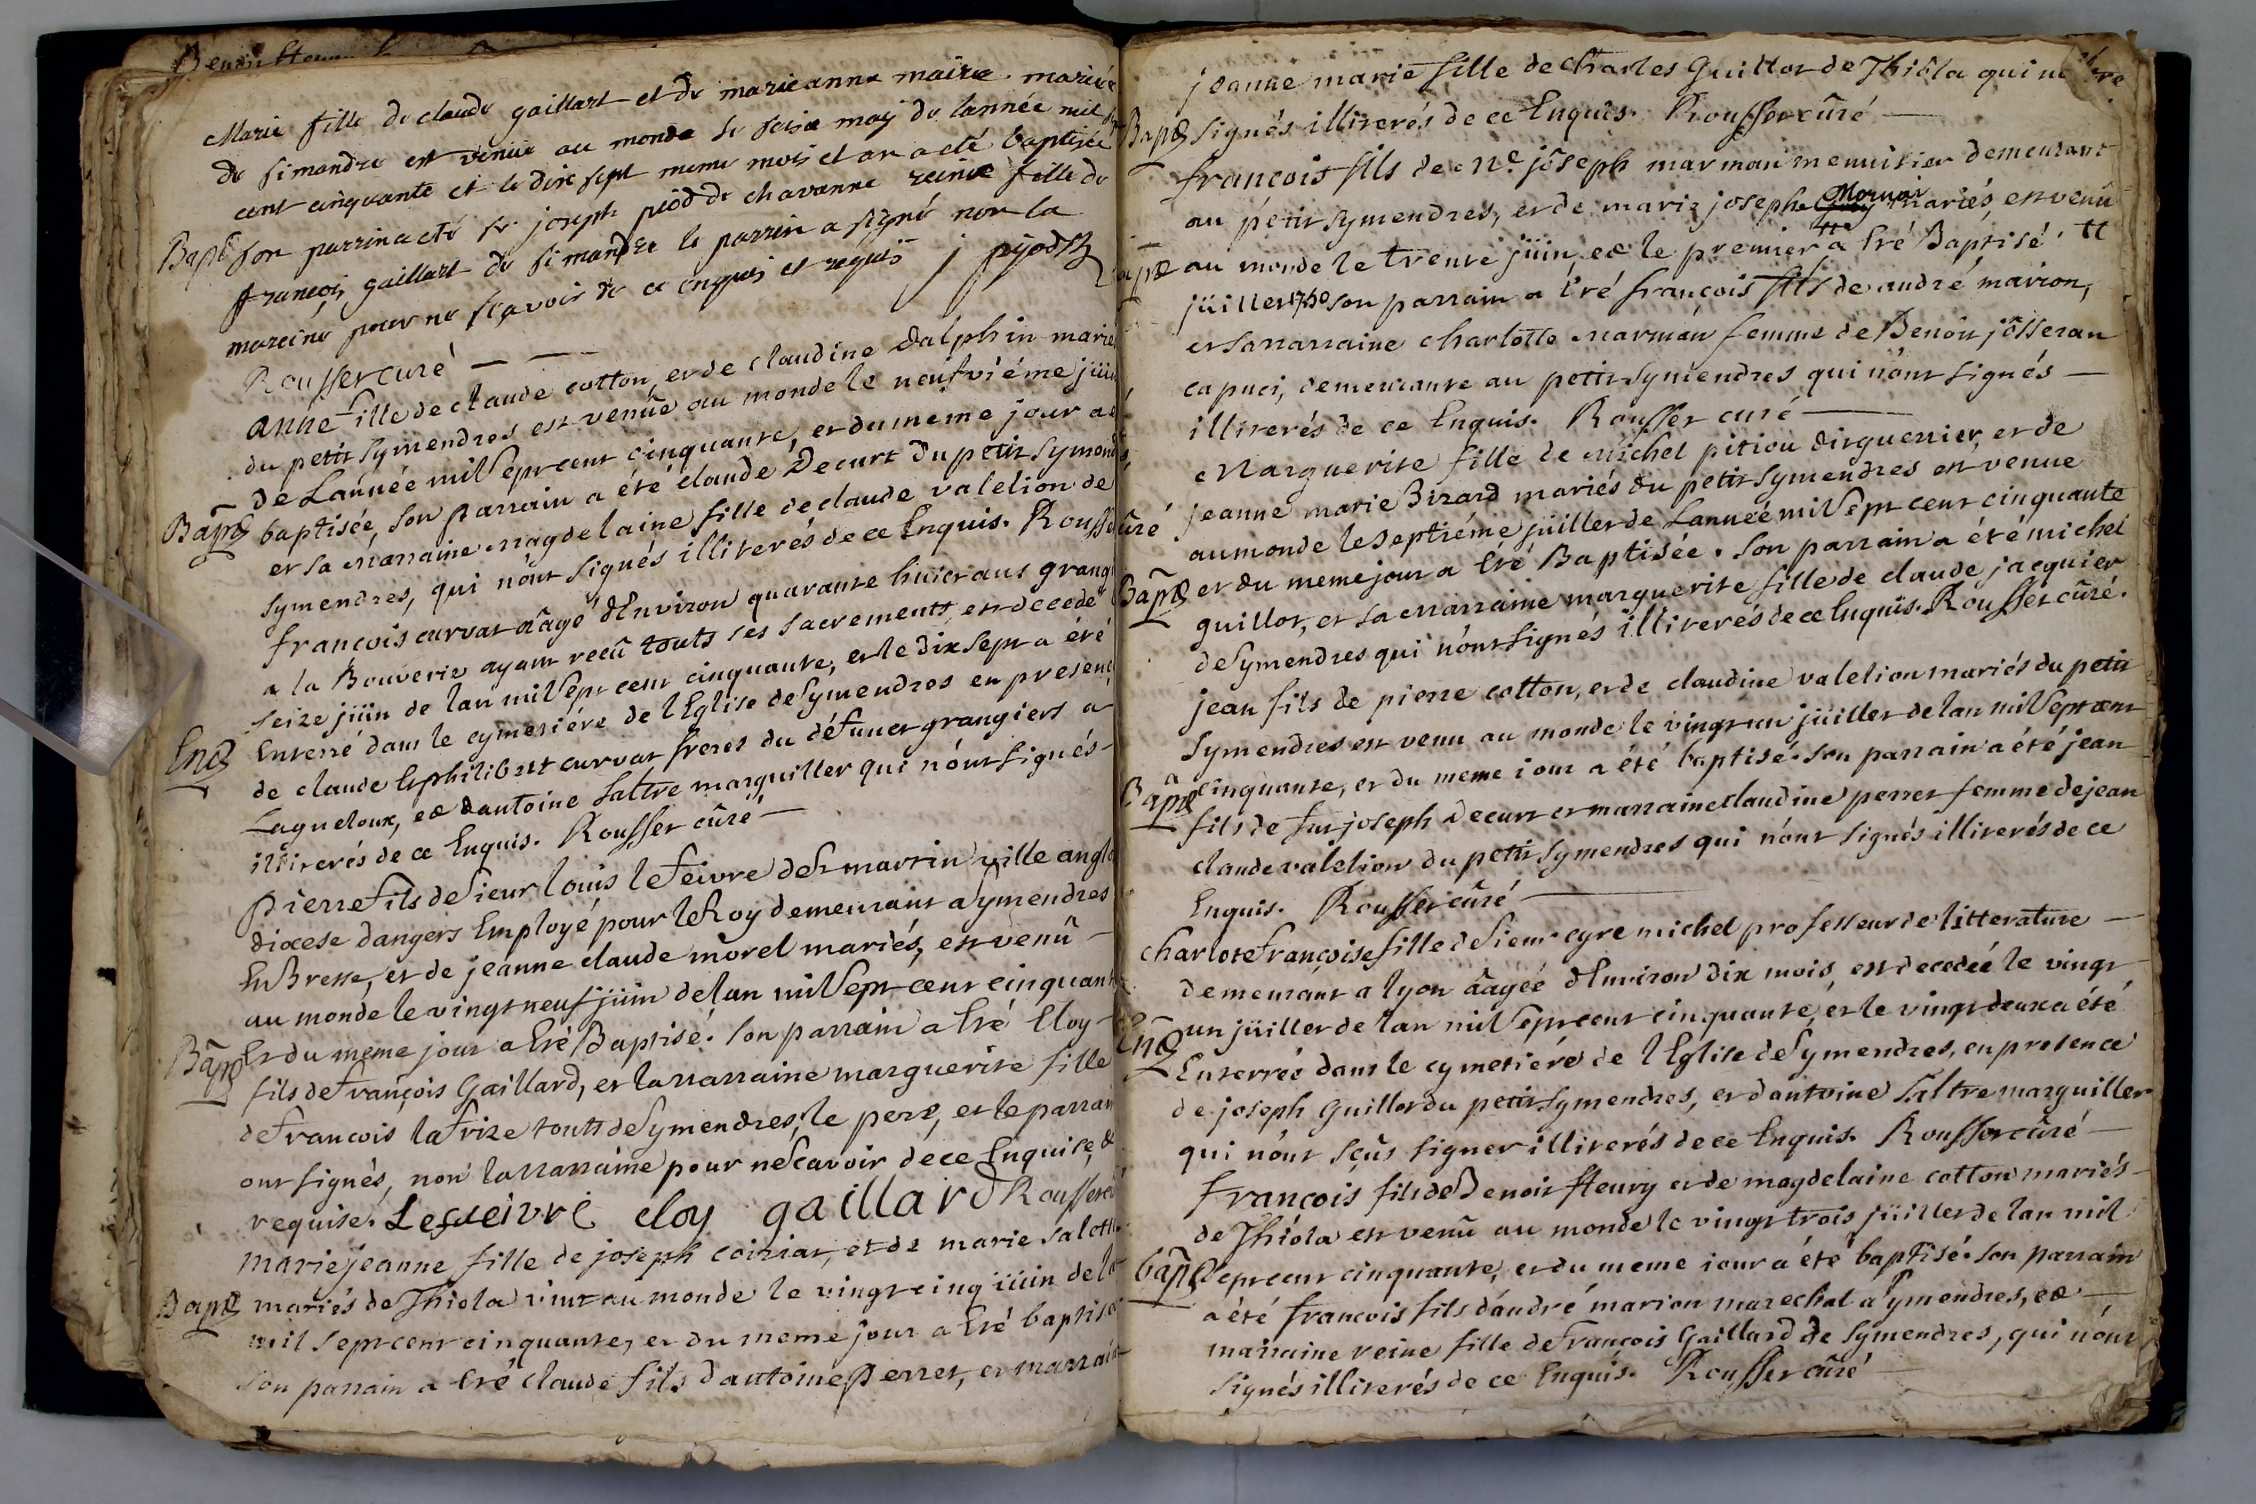 Marie fille de claude gaillart et de marieanne maire mariés
de simandre est venue au monde le seize may de lannée mil sept
cent cinquante et le dix sept meme mois et an a eté baptisée
Bapt son parrin a eté sr joseph piod de chavanne reine fille de
françois gaillart de simandre le parrin a signé non la
mareine pour ne sçavoir de ce enquis et requis j pyod
Rousset curé
anne fille de claude cotton, et de claudine dalphin mariés
du petit Symendres est venüe au monde le neufviéme jüin
de Lannée mil Sept cent cinquante, et du meme jour a eté
Bapt baptisée, son parrain a été claude Decurt du petit Symendres,
et sa marraine magdelaine fille de claude valelion de
Symendres, qui n'ont signés illiterés de ce Enquis. Rousset curé
francois curvat aâgé dEnviron quarante huict ans granger
a la Bouverie ayant reçû touts ses sacrements est decedé
seize jüin de lan mil Sept cent cinquante, et le dix sept a été
Ent Enterré dans le cymetiére de lEglise de Symendres en presence
de claude Et philibert curvat freres du défunct grangiers a
Lagueloux, et dantoine saltre marguiller qui n'ont signés
illiterés de ce Enquis. Rousset cûré
Pierre fils de Sieur louis lefeivre de st martin ville
dioxese dangers Employé pour le Roy demeurant a Symendres
En Bresse, et de jeanne claude morel mariés, est venû
au monde le vingt neuf jüin de lan mil Sept cent cinquante
Bapt Et du meme jour a Eté Baptisé. Son parrain a Eté Eloy
fils de François Gaillard, et la marraine marguerite fille
de francois lafrize touts de Symendres, le pere, et le parrain
ont signés, non la marraine pour ne Scavoir de ce Enquise, et
requise. Lefeivre eloy gaillard Rousset
marie jeanne fille de joseph coiriat, et de marie
Bapt mariés de Thiola vint au monde le vingt cinq jüin de lan
mil sept cent cinquante, et du meme jour a Eté baptisée
Son parrain a Eté claude fils dantoine Perret, et marraine
jeanne marie fille de charles Guillot de Thiola qui
Bapt signés illiterés de ce Enquis. Rousset cûré
francois fils de me. jôseph marman menuisier demeurant
au petit symendres, et de marie josephe Mornai mariés, est venû
Bapt au monde le trente jüin, et le premier a Eté Baptisé
jüillet 1750 son parrain a Eté françois fils de andré marion,
et sa marraine charlotte marman femme de Benoit jôsseran
capuci, demeurante au petit symendres qui n'ont signés
illiterés de ce Enquis. Rousset curé
Marguerite fille de michel pitiou dirguerrier, et de
jeanne marie Birard mariés du petit Symendres est venue
au monde le septiéme jüillet de Lannéé mil Sept cent cinquante
Bapt et du meme jour a Eté Baptisée. Son parrain a été michel
guillot, et sa marraine marguerite fille de claude jacquier
de Symendres qui n'ont signés illiterés de ce Enquis. Rousset cûré.
jean fils de pierre cotton, et de claudine valelion mariés du petit
Symendres est venu au monde le vingt un jüillet de lan mil Sept cent
Bapt cinquante, et du meme jour a été baptisé. son parrain a été jean
fils de fut joseph decurt et marraine claudine perret femme de jean
claude valelion du petit Symendres qui n'ont signés illiterés de ce
Enquis. Rousset cûré
charlote françoise fille de Sieur cyre michel professeur de litterature
demeurant a lyon âagéé dEnviron dix mois est decedéé le vingt
un jüillet de lan mil Sept cent cinquante, et le vingt deux a été
Ent Enterréé dans le cymetiére de lEglise de Symendres, en presence
de joseph Guillot du petit Symendres, et dantoine saltre marguiller
qui n'ont sçus signer illiterés de ce Enquis. Rousset cûré
françois fils de Benoit fleury et de magdelaine cotton mariés
de Thiola est venû au monde le vingt trois jüillet de lan mil
bapt Sept cent cinquante, et du meme jour a été baptisé. son parrain
a été francois fils dandré marion marechal a Symendres, et
marraine reine fille de François Gaillard de Symendres, qui n'ont
signés illiterés de ce Enquis. Rousset cûré